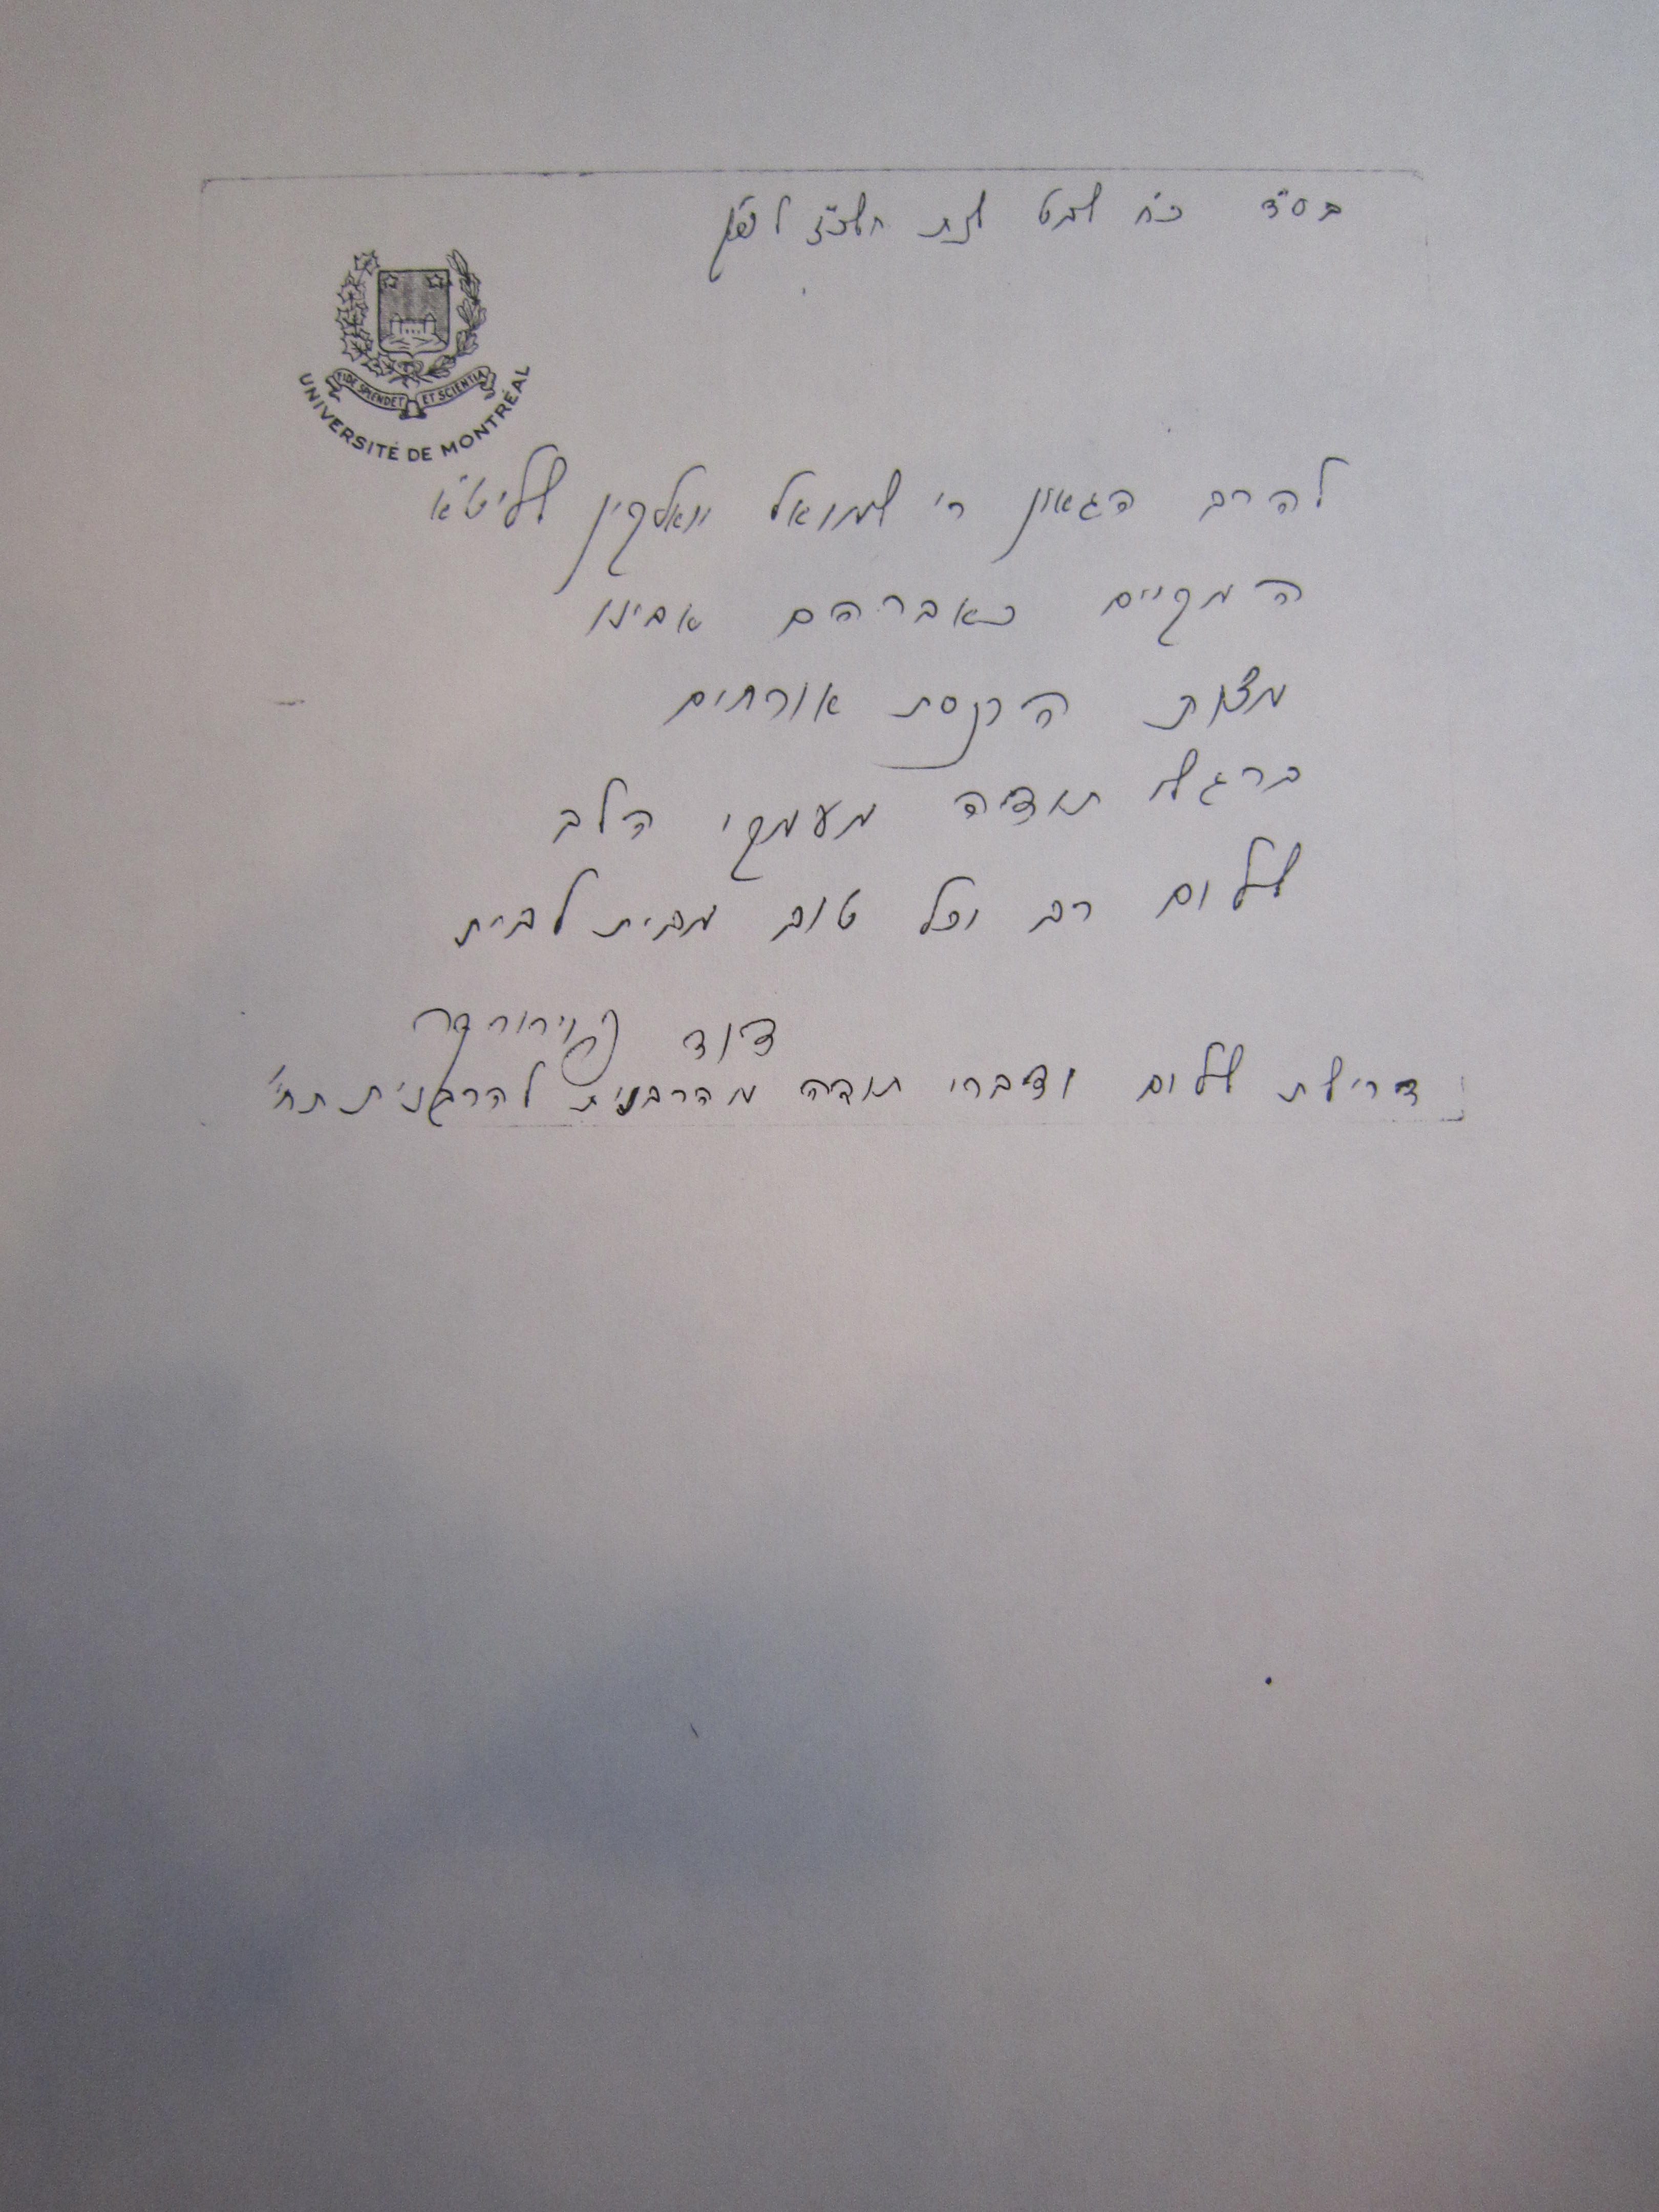 בס"ד כ"ח שבט שנת תשכ"ז לפ"ק
FIDE SPLENDET ET SCIENTIA
UNIVERSITÉ DE MONTRÉAL
להרב הגאון ר' שמואל וואלקין שליט"א
המקיים כאברהם אבינו
מצות הכנסת אורחים
ברגשי תודה מעמקי הלב
שלום רב וכל טוב מבית לבית
דוד
דרישת שלום ודברי תודה מהרבנית להרבנית תחי'